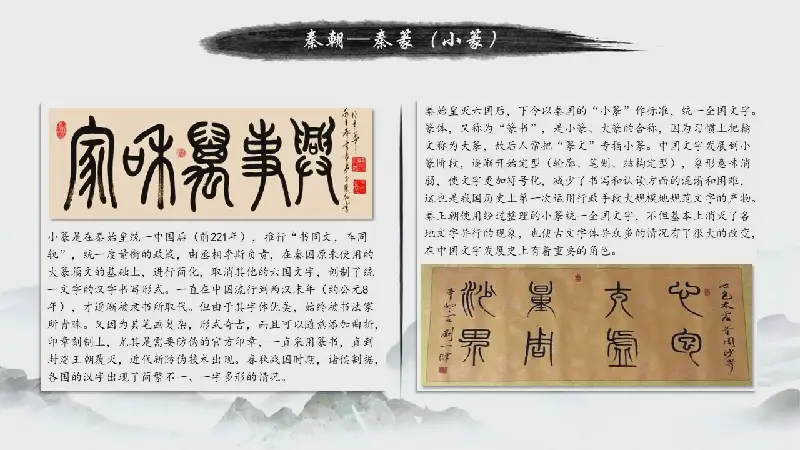 秦朝—秦篆（小篆）
家和萬事興
小篆是在秦始皇统一中国后（前221年），推行“书同文，车同
轨”，统一度量衡的政策，由丞相李斯负责，在秦国原来使用的
大篆籀文的基础上，进行简化，取消其他的六国文字，创制了统
一文字的汉字书写形式。一直在中国流行到西汉末年（约公元8
年），才逐渐被隶书所取代。但由于其字体优美，始终被书法家
所青睐。又因为其笔画复杂，形式奇古，而且可以随意添加曲折，
印章刻制上，尤其是需要防伪的官方印章，一直采用篆书，直到
封建王朝覆灭，近代新防伪技术出现。春秋战国时期，诸侯割据，
各国的汉字出现了简繁不一、一字多形的情况。
秦始皇灭六国后，下令以秦国的“小篆”作标准，统一全国文字。
篆体，又称为“篆书”，是小篆、大篆的合称，因为习惯上把籀
文称为大篆，故后人常把“篆文”专指小篆。中国文字发展到小
篆阶段，逐渐开始定型（轮廓、笔划、结构定型），象形意味消
弱，使文字更加符号化，减少了书写和认读方面的混淆和困难，
这也是我国历史上第一次运用行政手段大规模地规范文字的产物。
秦王朝使用经过整理的小篆统一全国文字，不但基本上消灭了各
地文字异行的现象，也使古文字体异众多的情况有了很大的改变，
在中国文字发展史上有着重要的角色。
心包
太虛
量周
沙界